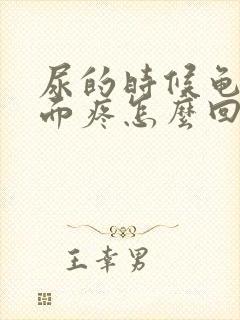 尿的時候龟
而疼怎麼回
王幸男